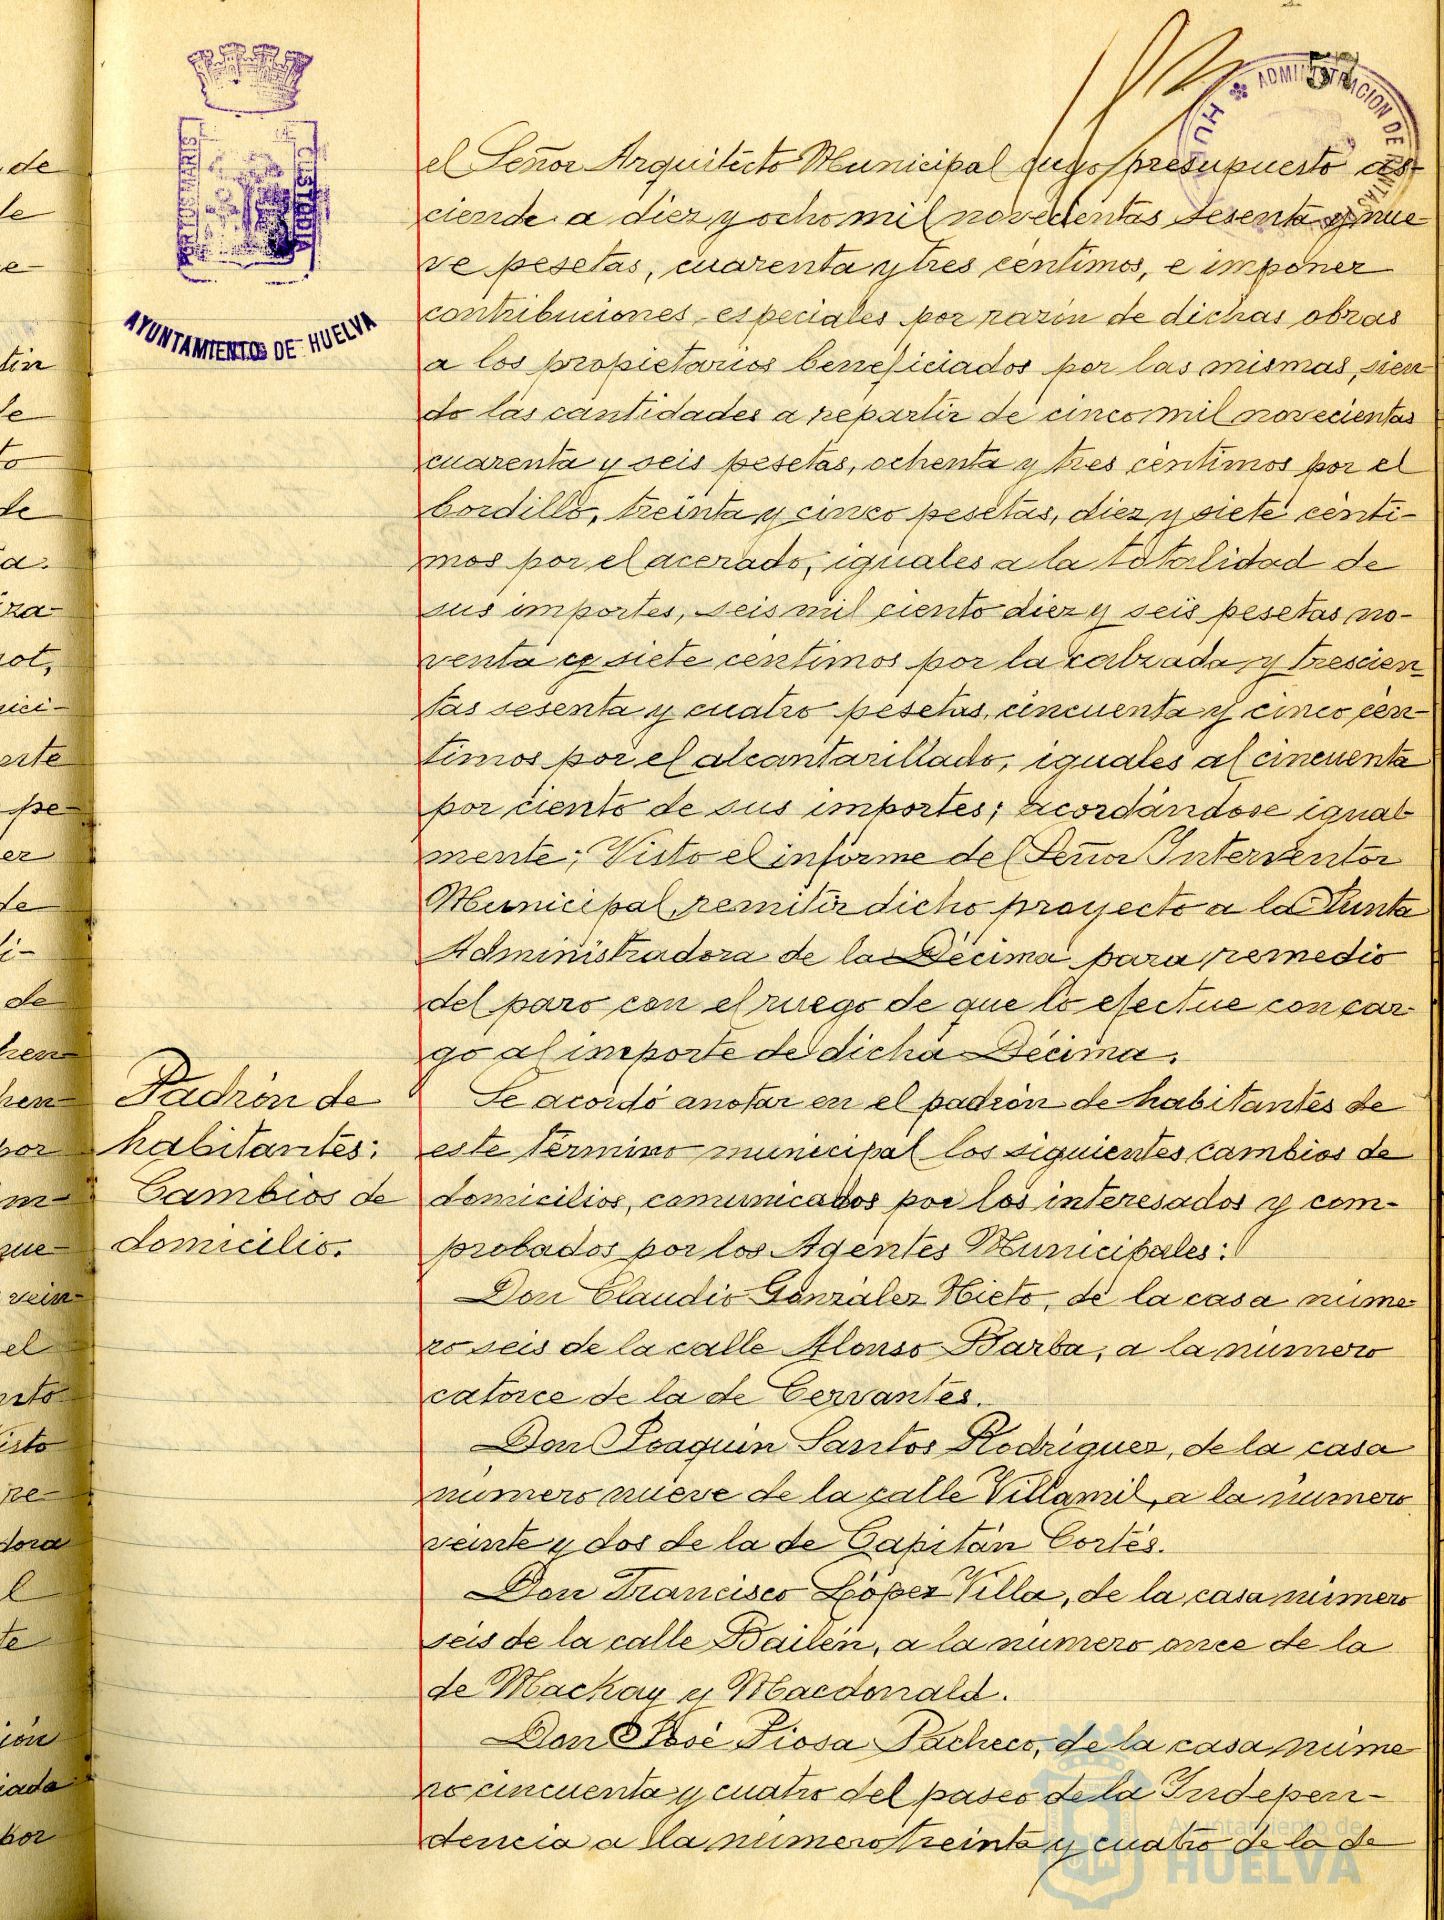 57
ADMINISTRACION DE RENTAS
HUELVA
PORTUS MARIS
CUSTODIA
AYUNTAMIENTO DE HUELVA
el Señor Arquitecto Municipal cuyo presupuesto as-
ciende a diez y ocho mil novecientas sesenta y nue-
ve pesetas, cuarenta y tres céntimos, e imponer
contribuciones especiales por razón de dichas obras
a los propietarios beneficiados por las mismas, sien-
do las cantidades a repartir de cinco mil novecientas
cuarenta y seis pesetas, ochenta y tres céntimos por el
bordillo, treinta y cinco pesetas, diez y siete cénti-
mos por el acerado, iguales a la totalidad de
sus importes, seis mil ciento diez y seis pesetas no-
venta y siete céntimos por la calzada y trescien-
tas sesenta y cuatro pesetas, cincuenta y cinco cén-
timos por el alcantarillado, iguales al cincuenta
por ciento de sus importes; acordándose igual-
mente; Visto el informe del Señor Interventor
Municipal, remitir dicho proyecto a la Junta
Administradora de la Décima para remedio
del paro con el ruego de que lo efectue con car-
go al importe de dicha Décima.
Padrón de
habitantes:
Cambios de
domicilio.
Se acordó anotar en el padrón de habitantes de
este término municipal los siguientes cambios de
domicilios, comunicados por los interesados y com-
probados por los Agentes Municipales:
Don Claudio González Nieto, de la casa núme-
ro seis de la calle Alonso Barba, a la número
catorce de la de Cervantes.
Don Joaquín Santos Rodríguez, de la casa
número nueve de la calle Villamil, a la número
veinte y dos de la de Capitán Cortés.
Don Francisco López Villa, de la casa número
seis de la calle Bailén, a la número once de la
de Mackay y Macdonald.
Don José Piosa Pacheco, de la casa núme
ro cincuenta y cuatro del paseo de la Indepen-
dencia a la número treinta y cuatro de la de
Ayuntamiento de
HUELVA